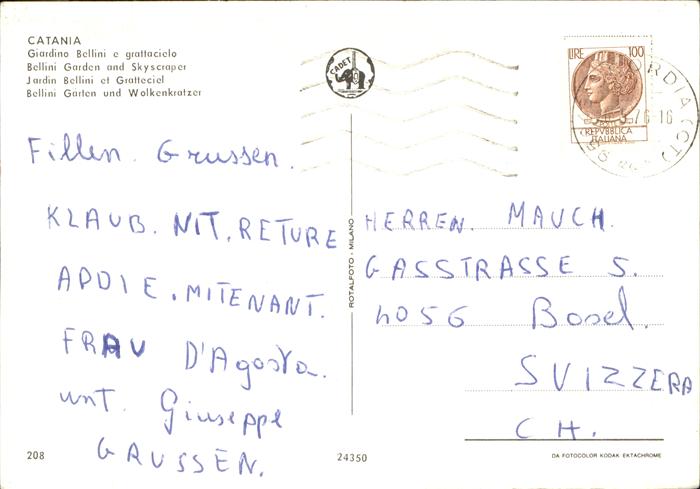 CATANIA
Giardino Bellini e grattacielo
Bellini Garden and Skyscraper
Jardin Bellini et Gratteciel
Bellini Garten und Wolkenkratzer
CADET
LIRE 100
REPVBBLICA
ITALIANA
Fillen. Grussen.
KLAUB. NIT. RETURE
APDIE. MITENANT.
FRAU D'Agosta.
unt. Giuseppe
GRUSSEN.
ROTALFOTO - MILANO
HERREN. MAUCH.
GASSTRASSE 5.
4056 Basel.
SVIZZERA
CH.
208
24350
DA FOTOCOLOR KODAK EKTACHROME